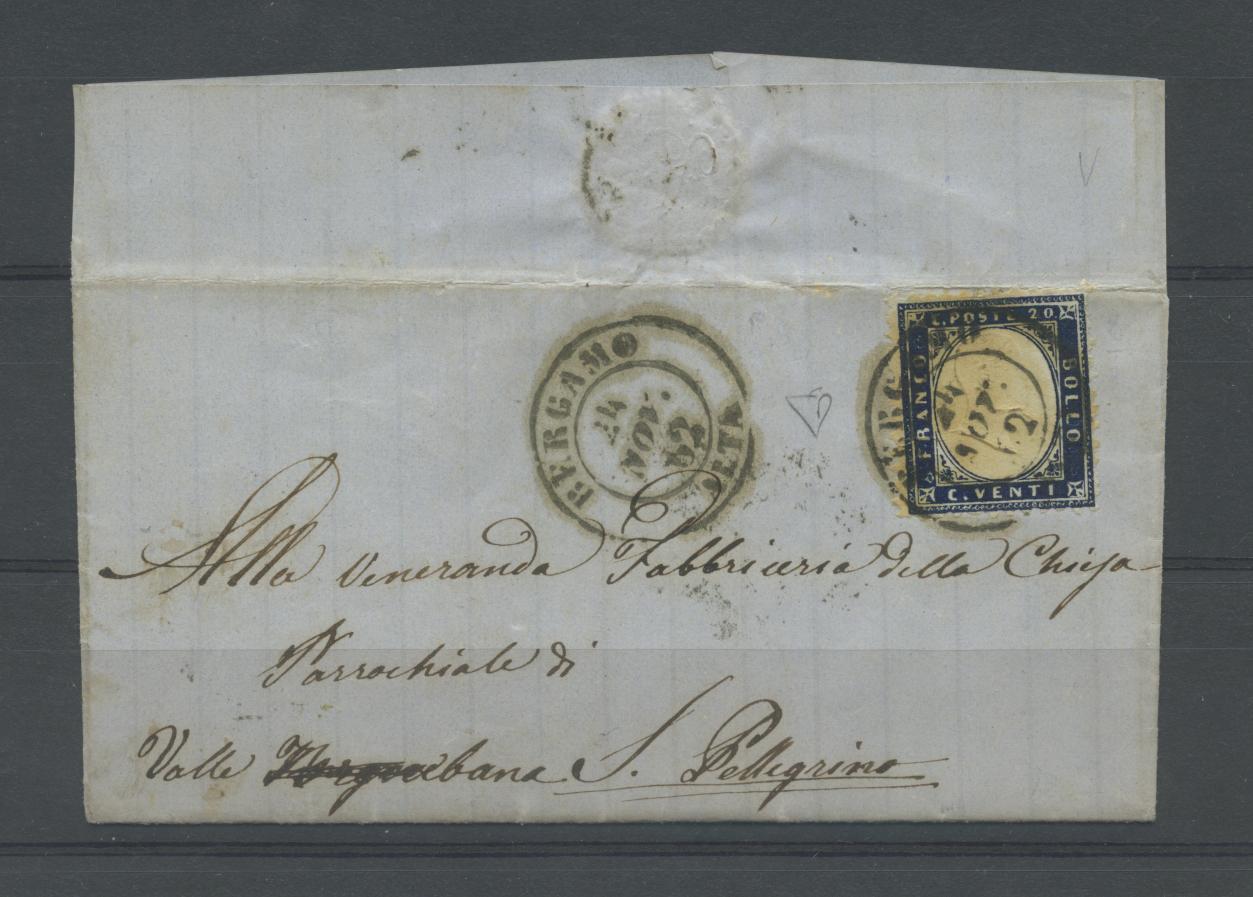 C. POSTE 20.
FRANCO
BOLLO
C. VENTI
BERGAMO
24
NOV.
62
BERG
24
NOV.
62
Alla Veneranda Fabbriceria della Chiesa
Parrochiale di
Valle bana S. Pellegrino